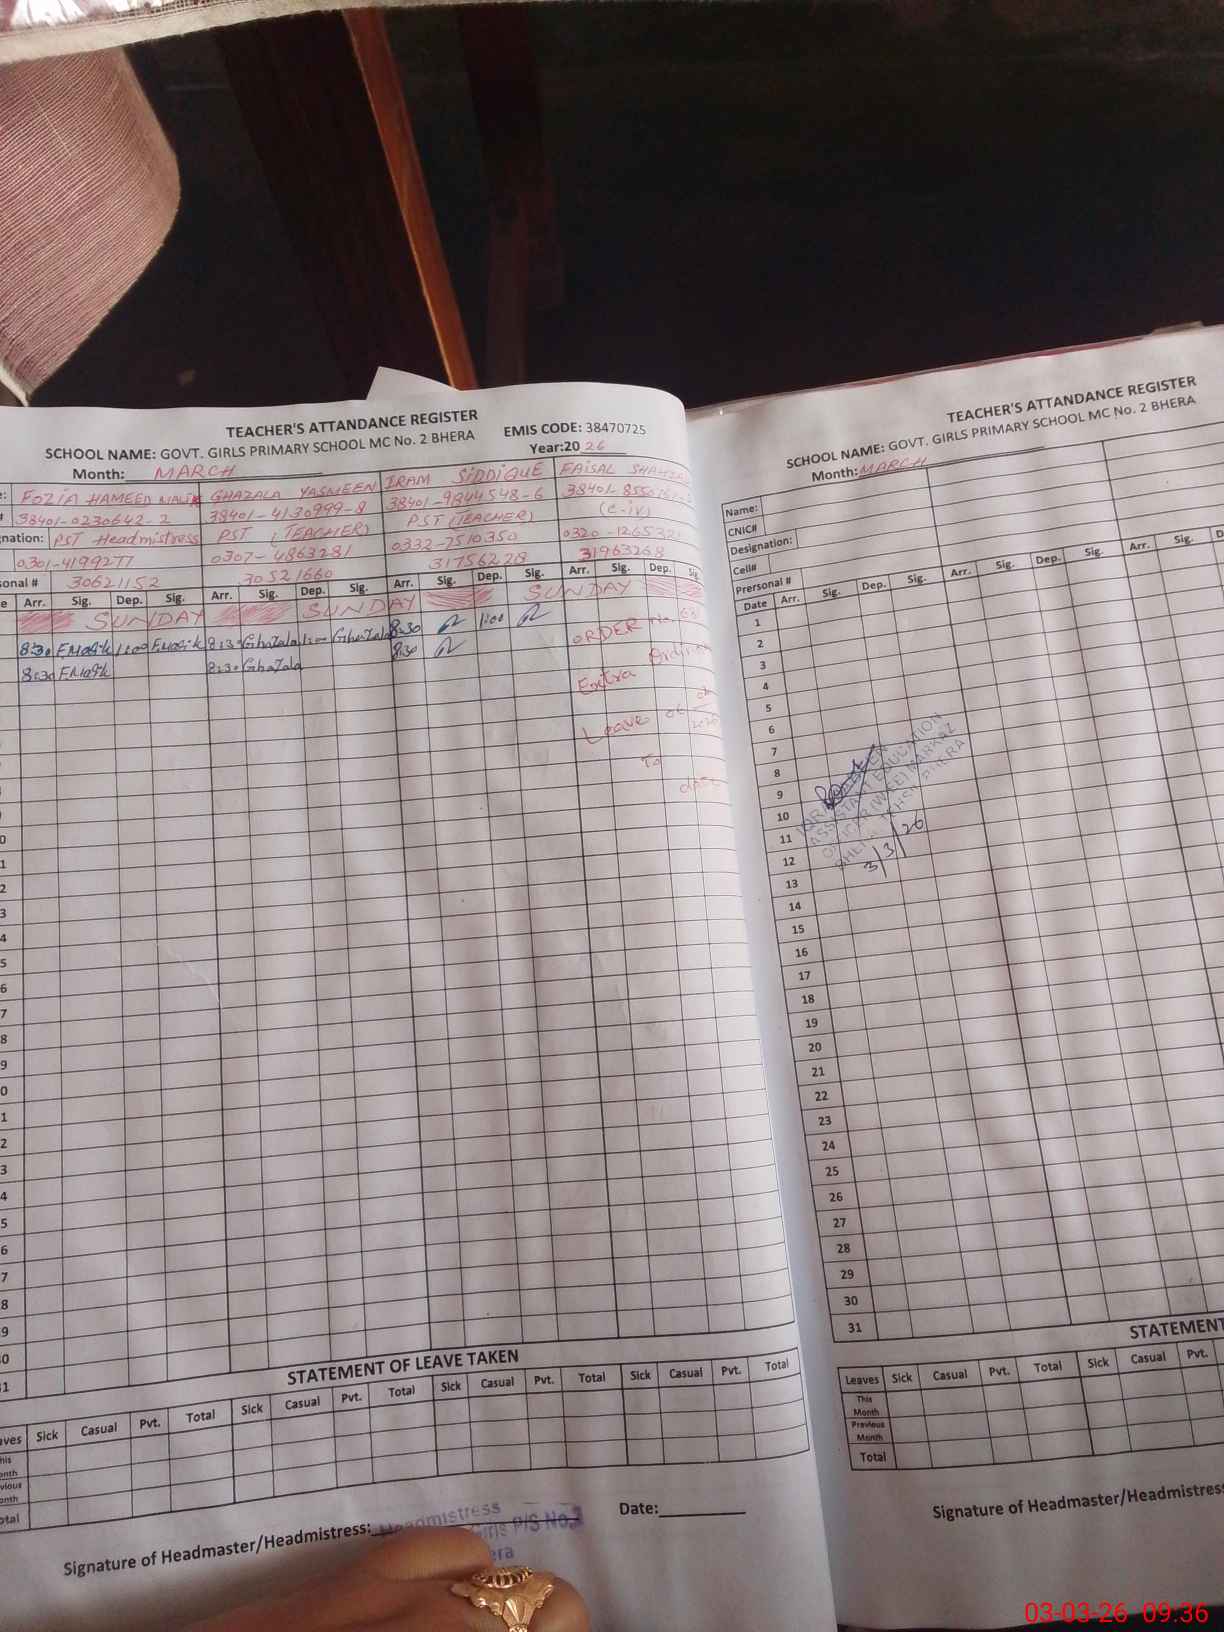 TEACHER'S ATTANDANCE REGISTER
SCHOOL NAME: GOVT. GIRLS PRIMARY SCHOOL MC No. 2 BHERA EMIS CODE: 38470725
Month: MARCH Year:2026
FOZIA HAMEED MALIK GHAZALA YASMEEN IRAM SIDDIQUE FAISAL
38401-0230642-2 38401-4130999-8 38401-9844548-6
nation: PST Headmistress PST (TEACHER) PST (TEACHER) (C-iv)
0301-4199277 0307-4863281 0332-7510350
sonal # 30621152 30521660 31756228 31963268
e Arr. Sig. Dep. Sig. Arr. Sig. Dep. Sig. Arr. Sig. Dep. Sig. Arr. Sig. Dep. Sig.
SUNDAY SUNDAY SUNDAY
8:30 FMalik 1:00 FMalik 8:30 Ghazala 1:00 Ghazala 8:30 1:00
8:30 FMalik 8:30 Ghazala 8:30
ORDER No.
Extra
Leave
To
date
0
1
2
3
4
5
6
7
8
9
0
1
2
3
4
5
6
7
8
9
0
31
STATEMENT OF LEAVE TAKEN
aves Sick Casual Pvt. Total Sick Casual Pvt. Total Sick Casual Pvt. Total Sick Casual Pvt. Total
his
onth
vious
onth
otal
Signature of Headmaster/Headmistress: Date:
Headmistress
Girls P/S No.2
era
TEACHER'S ATTANDANCE REGISTER
SCHOOL NAME: GOVT. GIRLS PRIMARY SCHOOL MC No. 2 BHERA
Month: MARCH
Name:
CNIC#
Designation:
Cell#
Prersonal #
Date Arr. Sig. Dep. Sig. Arr. Sig. Dep. Sig. Arr. Sig. D
1
2
3
4
5
6
7
8
9
10
11
12
13
14
15
16
17
18
19
20
21
22
23
24
25
26
27
28
29
30
31
ASSISTANT EDUCATION
OFFICER (WEE) MARKAZ
BHERA TEHSIL BHERA
3/3/26
STATEMENT
Leaves Sick Casual Pvt. Total Sick Casual Pvt.
This
Month
Previous
Month
Total
Signature of Headmaster/Headmistress
03-03-26 09:36